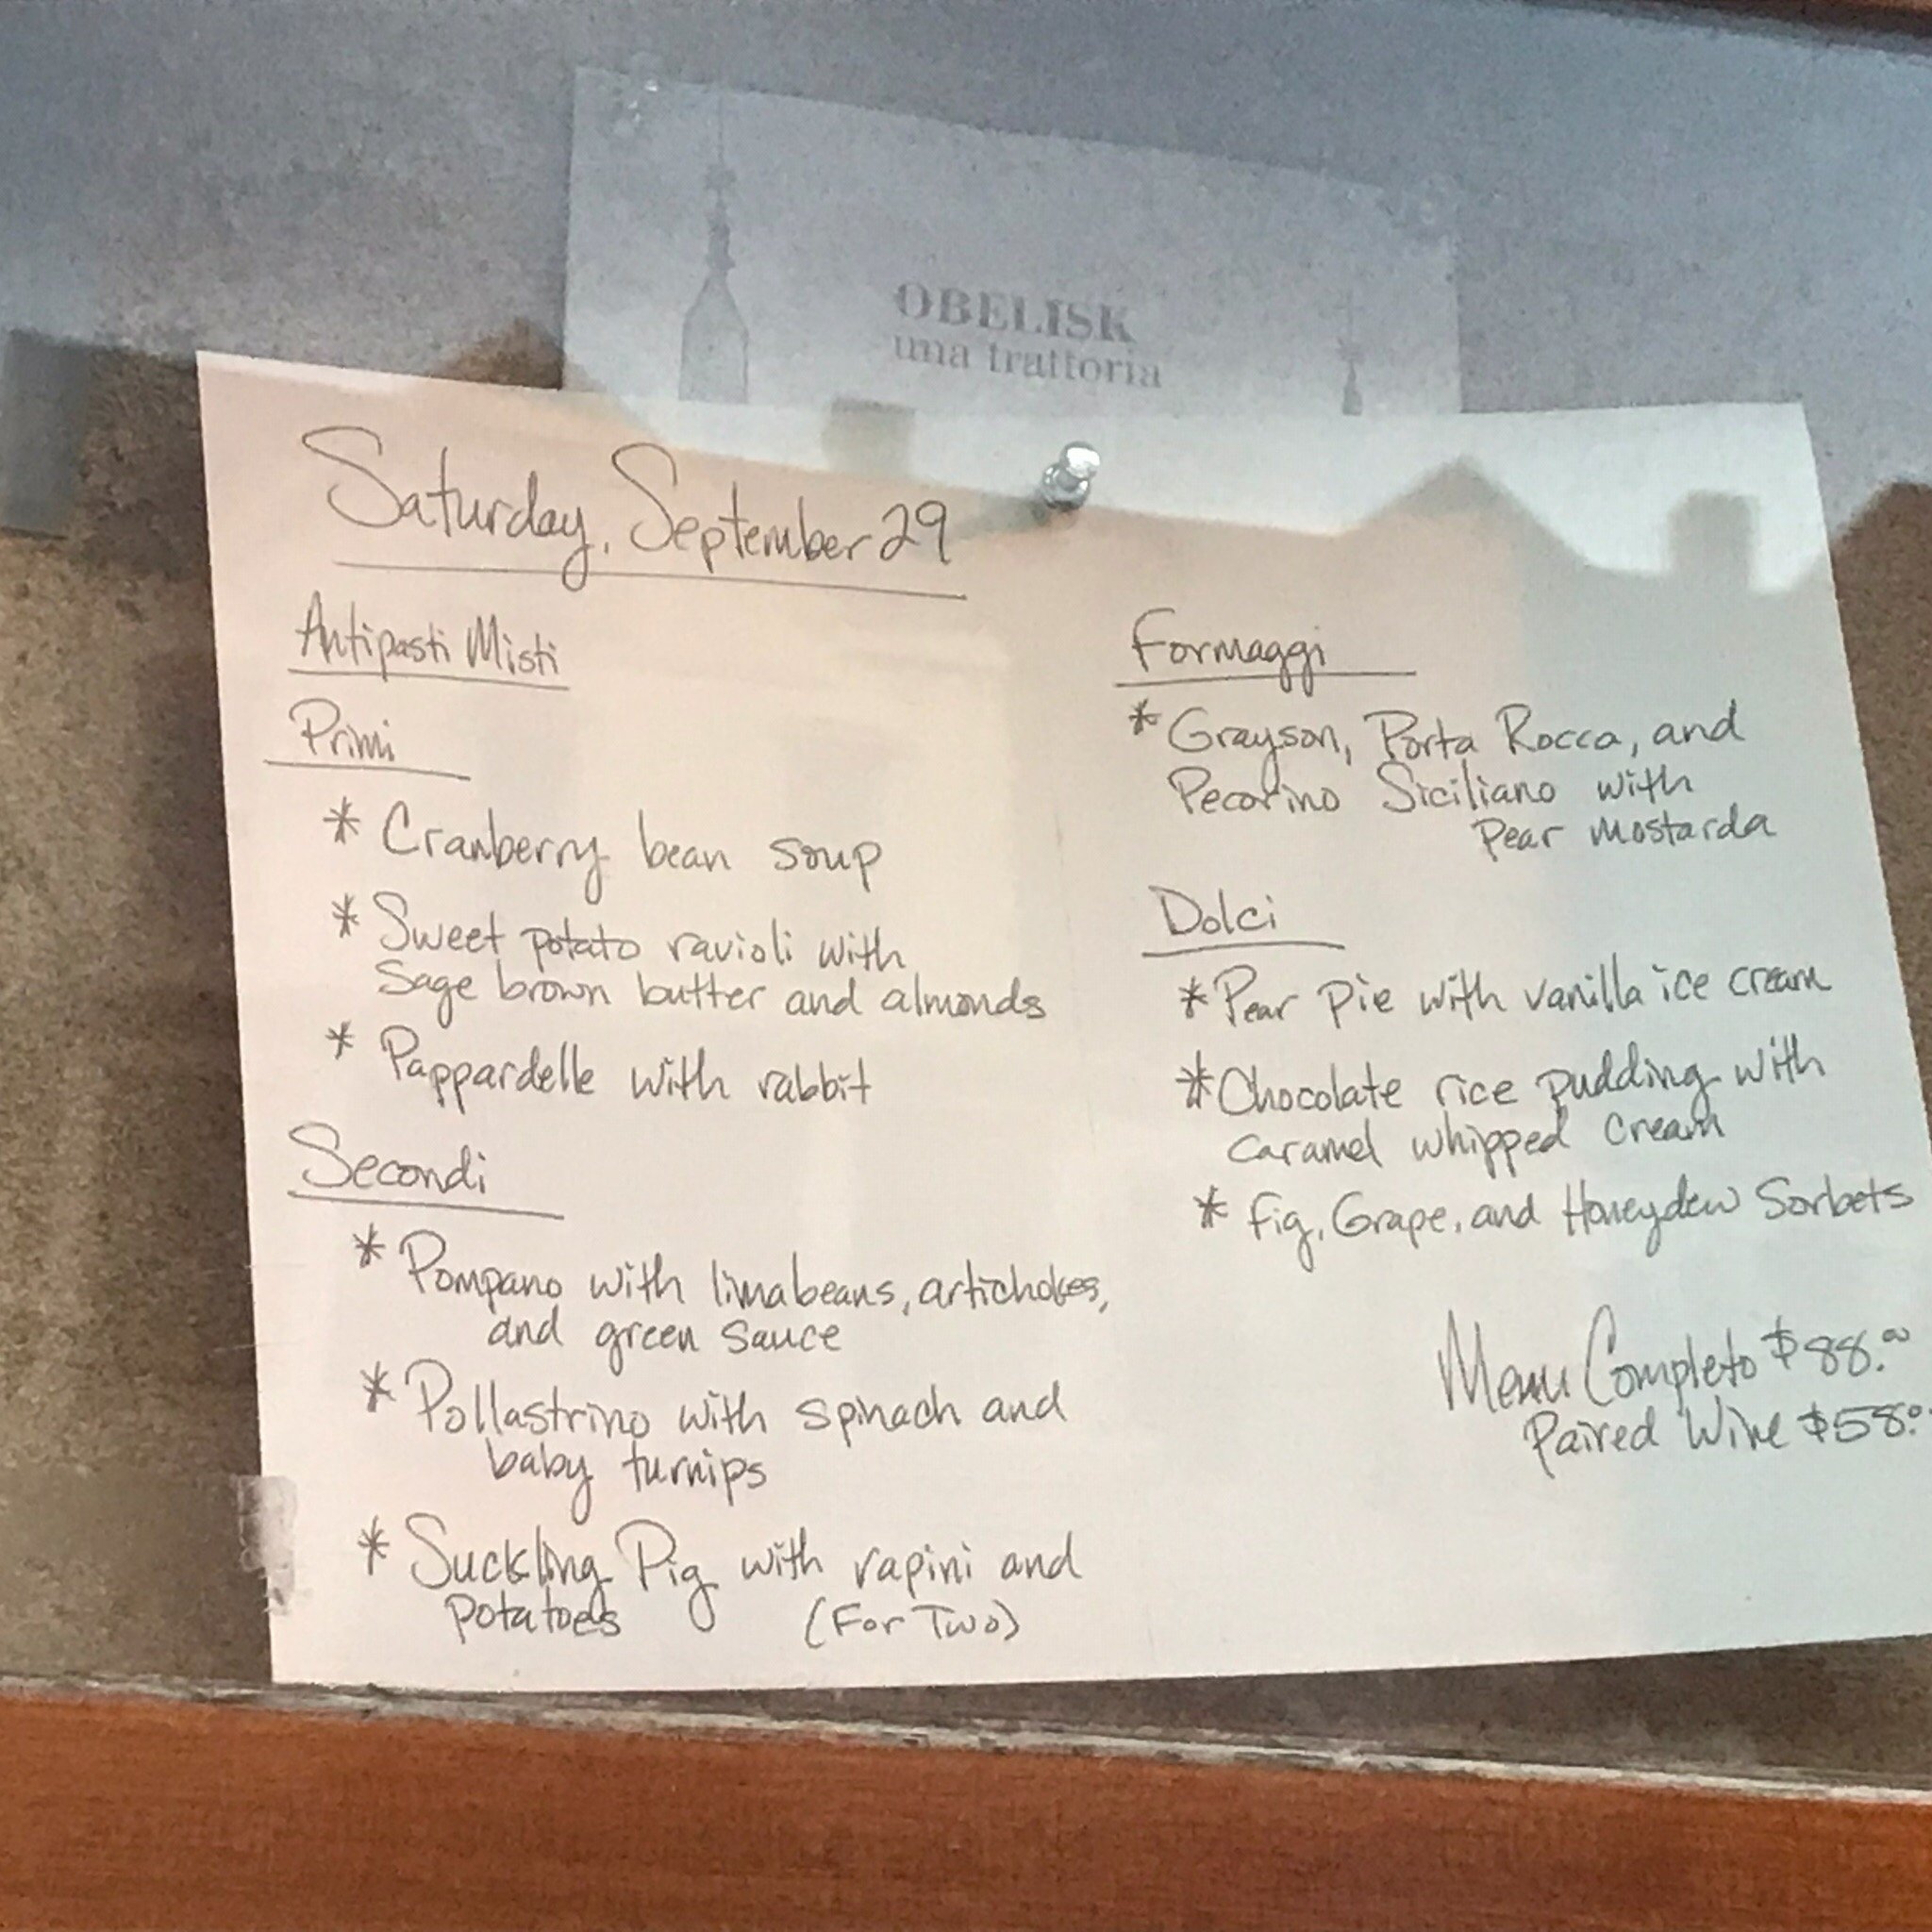 OBELISK
una trattoria
Saturday, September 29
Antipasti Misti
Primi
* Cranberry bean soup
* Sweet potato ravioli with
Sage brown butter and almonds
* Pappardelle with rabbit
Secondi
* Pompano with lima beans, artichokes,
and green sauce
* Pollastrino with spinach and
baby turnips
* Suckling Pig with rapini and
potatoes (For Two)
Formaggi
* Grayson, Porta Rocca, and
Pecorino Siciliano with
Pear Mostarda
Dolci
* Pear Pie with vanilla ice cream
* Chocolate rice pudding with
Caramel whipped cream
* Fig, Grape, and Honeydew Sorbets
Menu Completo $88.00
Paired Wine $58.0